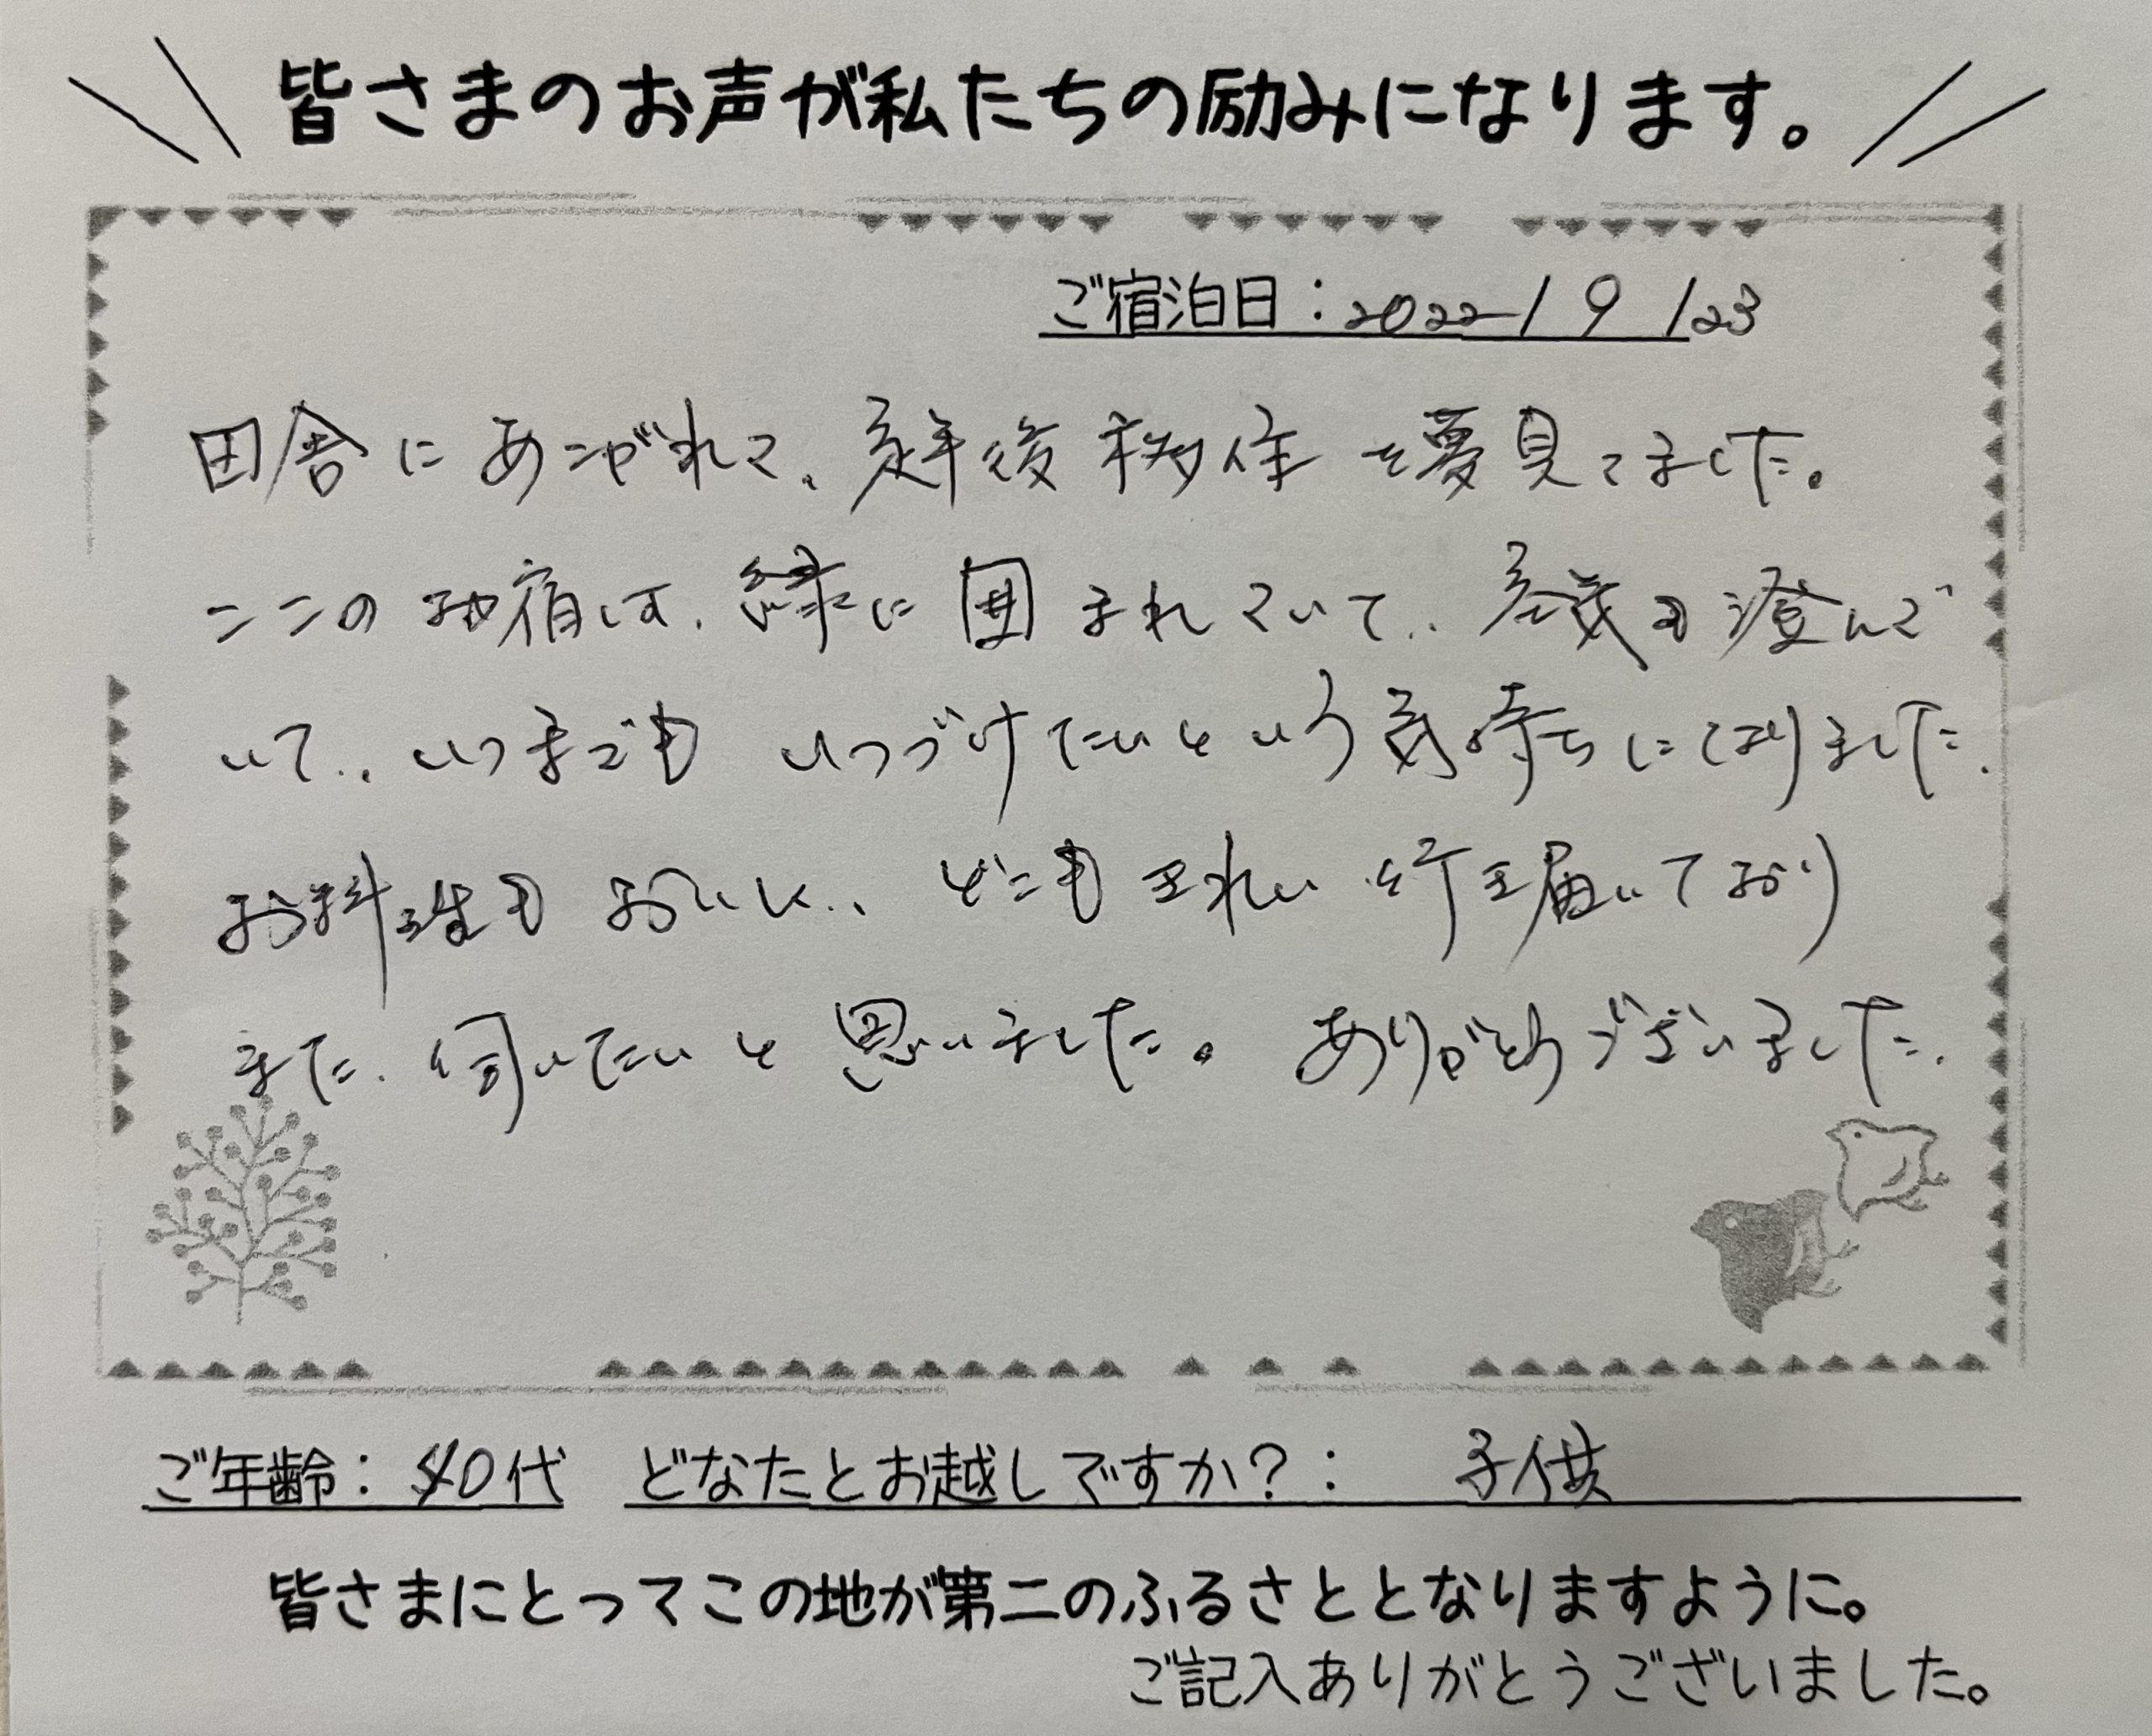 皆さまのお声が私たちの励みになります。
ご宿泊日：2022/9/23
田舎にあこがれて、定年後移住を夢見てました。
ここのお宿は、緑に囲まれていて、空気も澄んで
いて、いつまでもいつづけたいという気持ちになりました。
お料理もおいしく、どこもきれい 行き届いており
また、伺いたいと思いました。ありがとうございました。
ご年齢：40代 どなたとお越しですか？：子供
皆さまにとってこの地が第二のふるさととなりますように。
ご記入ありがとうございました。